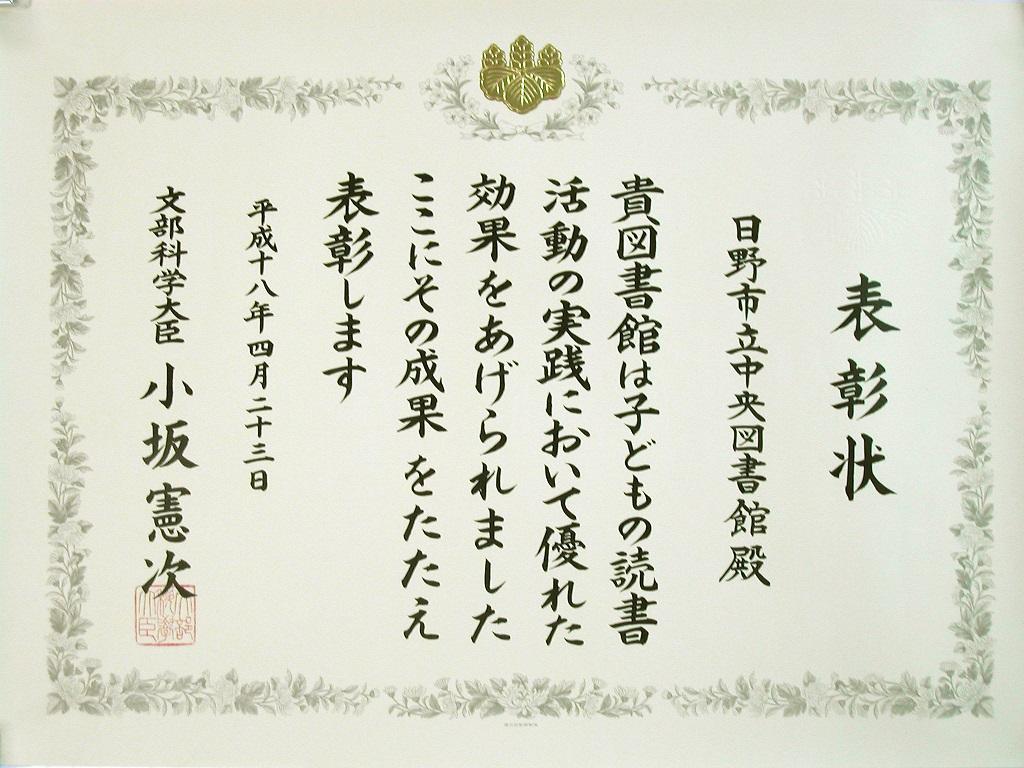 表彰状
日野市立中央図書館殿
貴図書館は子どもの読書
活動の実践において優れた
効果をあげられました
ここにその成果をたたえ
表彰します
平成十八年四月二十三日
文部科学大臣 小坂憲次